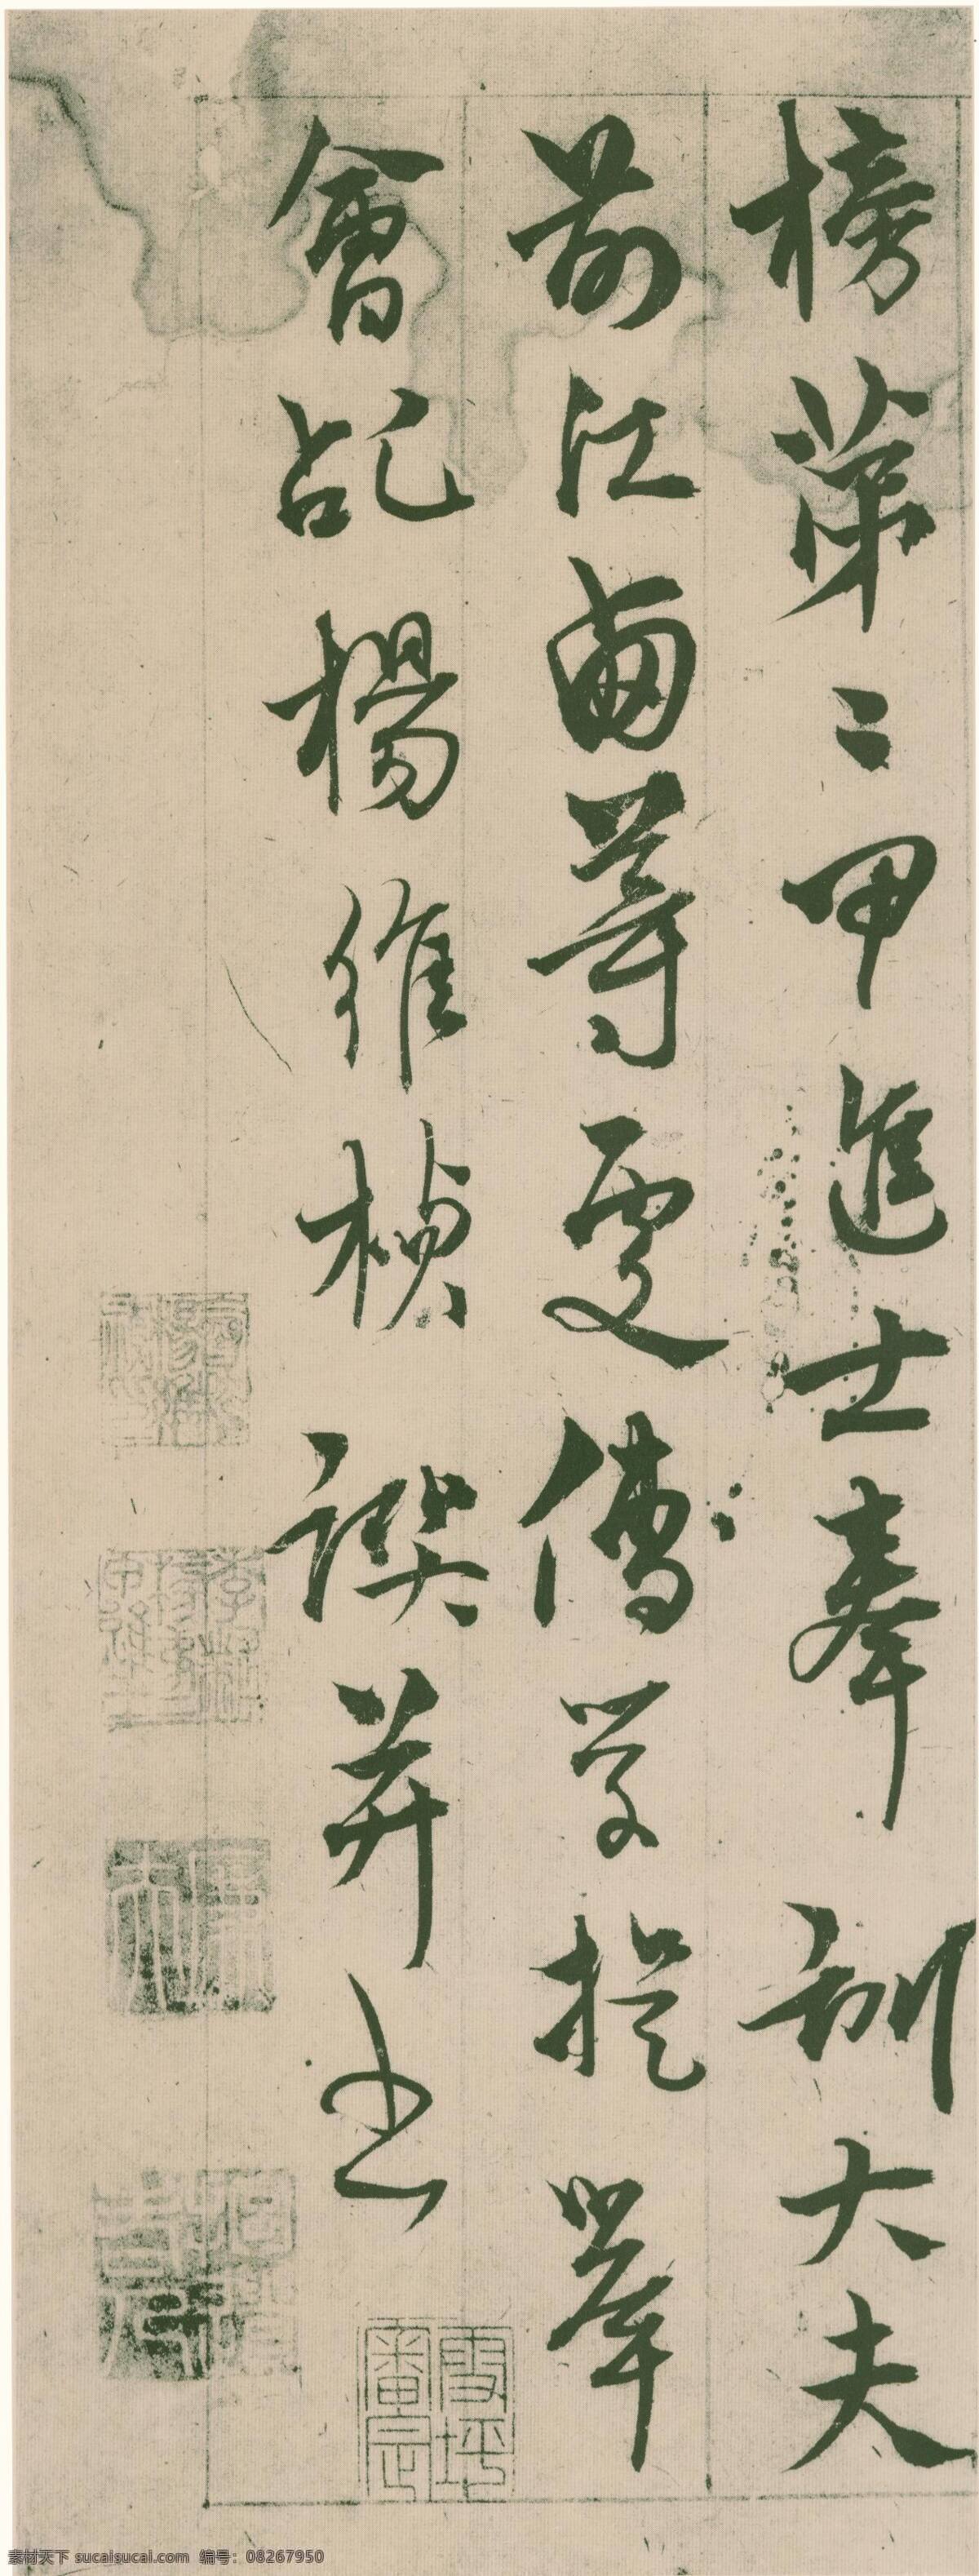 榜第二甲進士奉訓大夫
前江西等處儒學提舉
會稽楊維楨譔并書
雪坪審定
素材天下 sucaisucai.com 编号：08267950